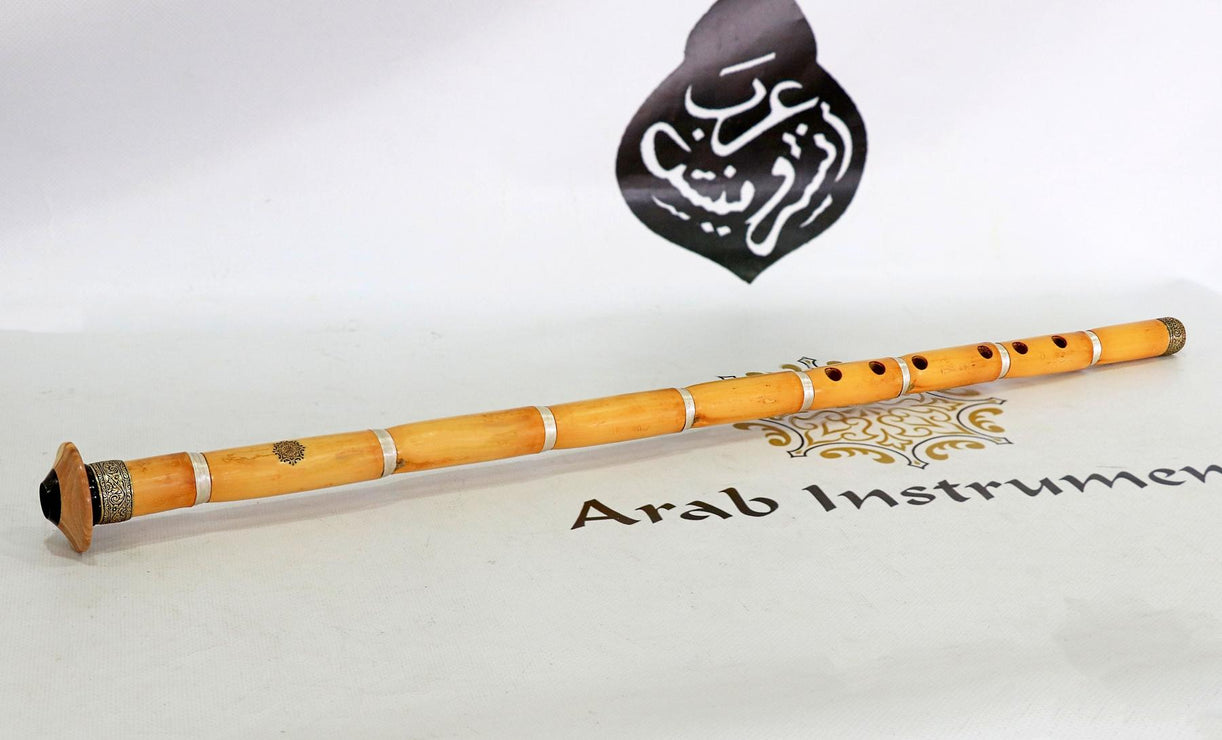 عرب
انسترومينتس
Arab Instrumen